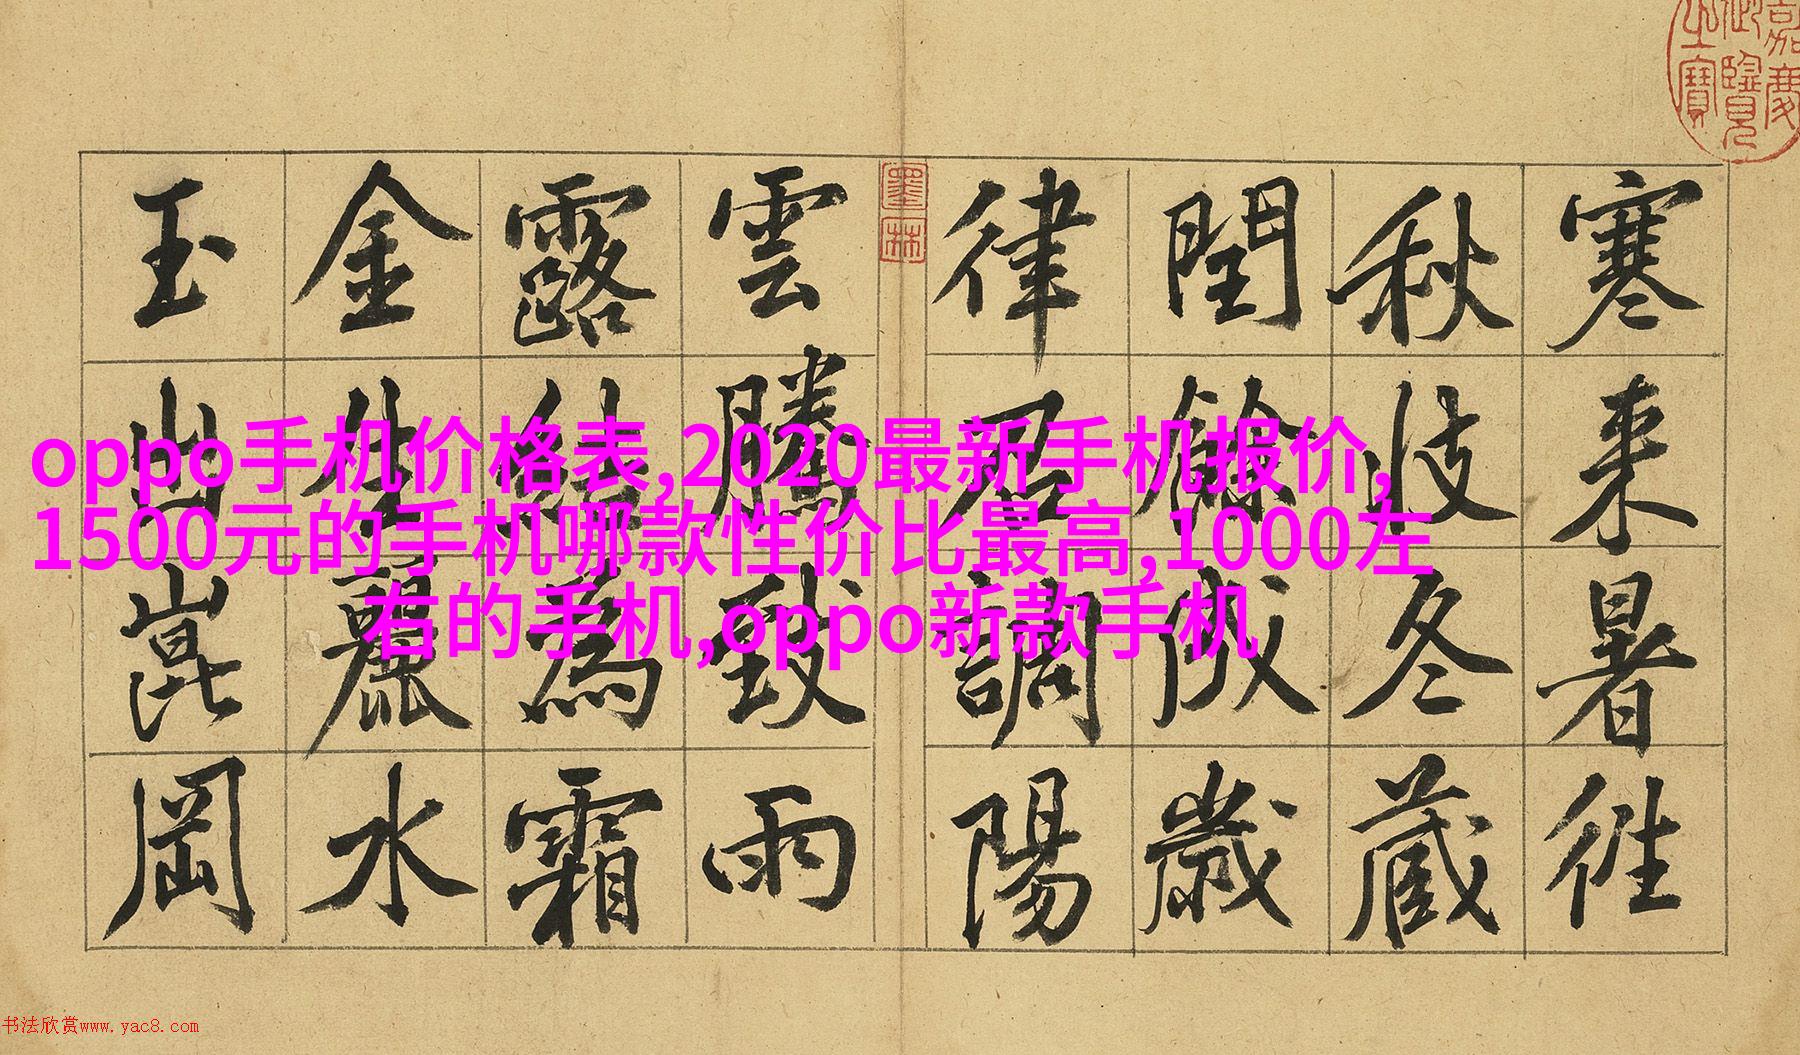 嘉慶御覽之寶
寒来暑往
秋收冬蔵
閏餘成歲
律召調陽
墨林
雲騰致雨
露結為霜
金生麗水
玉出崑岡
oppo手机价格表,2020最新手机报价,
1500元的手机哪款性价比最高,1000左
右的手机,oppo新款手机
书法欣赏www.yac8.com